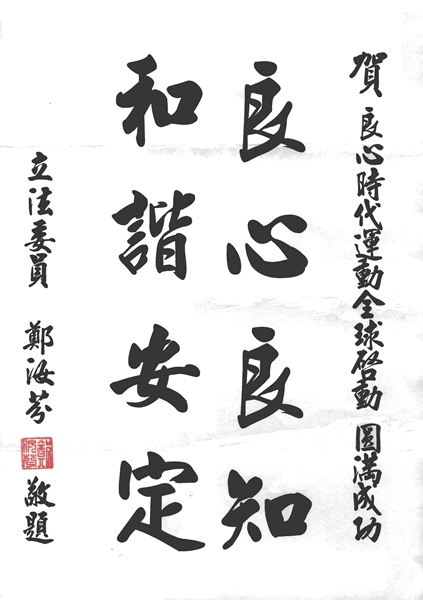 賀 良心時代運動全球啓動 圓滿成功
良心良知
和諧安定
立法委員 鄭汝芬 敬題